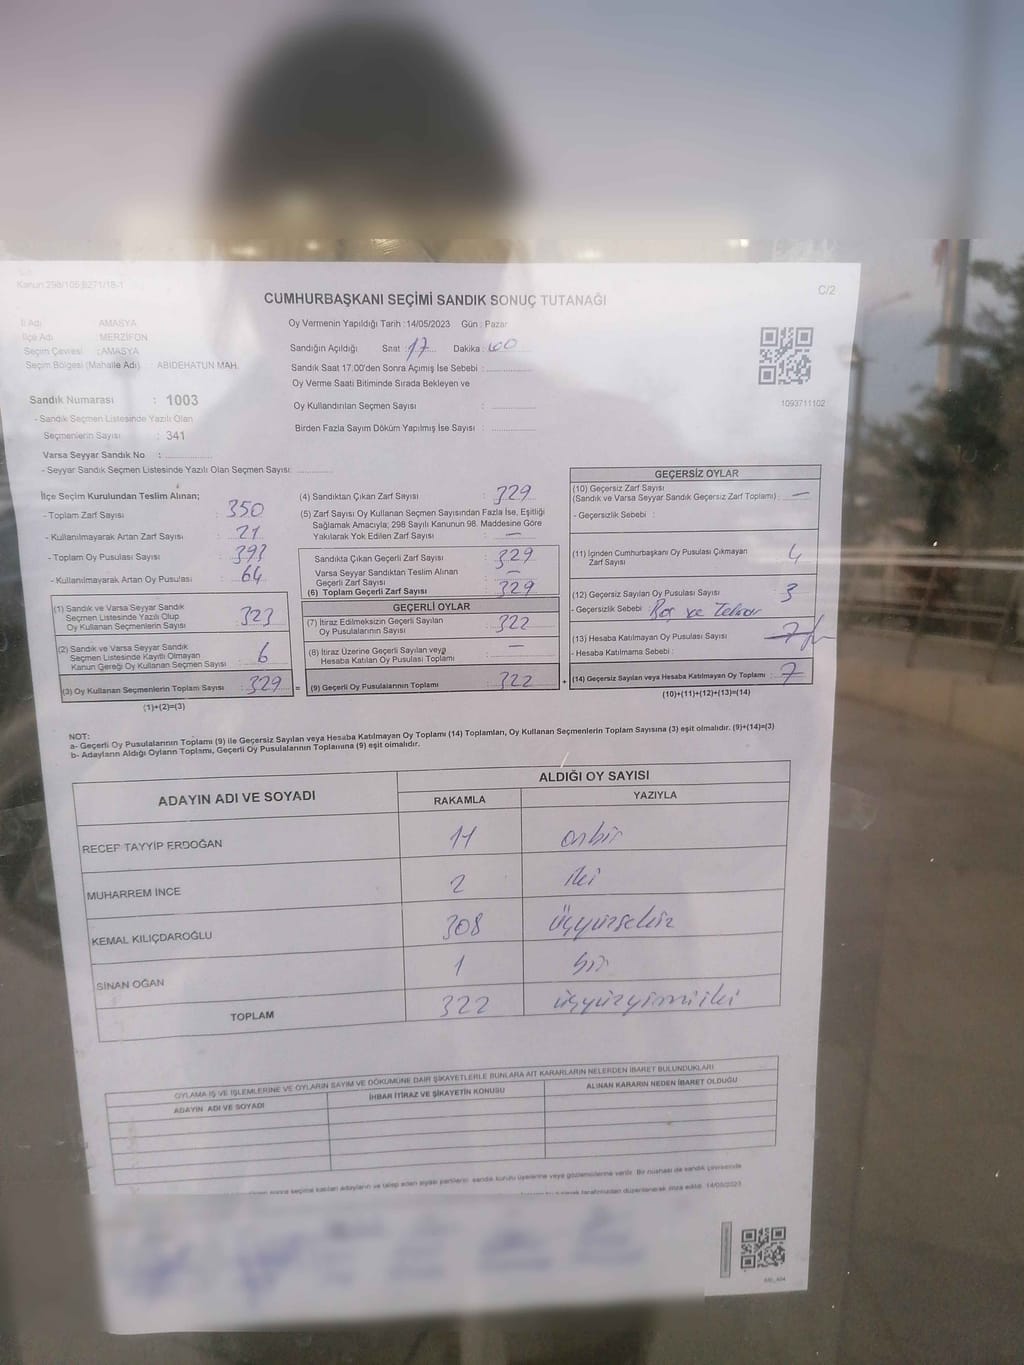 Kanun 298/105,6271/18-1
C/2
CUMHURBAŞKANI SEÇİMİ SANDIK SONUÇ TUTANAĞI
İl Adı : AMASYA
İlçe Adı : MERZİFON
Seçim Çevresi : AMASYA
Seçim Bölgesi (Mahalle Adı) : ABİDEHATUN MAH.
Sandık Numarası : 1003
- Sandık Seçmen Listesinde Yazılı Olan
Seçmenlerin Sayısı : 341
Varsa Seyyar Sandık No :
- Seyyar Sandık Seçmen Listesinde Yazılı Olan Seçmen Sayısı:
Oy Vermenin Yapıldığı Tarih : 14/05/2023 Gün : Pazar
Sandığın Açıldığı Saat : 17 Dakika : 00
Sandık Saat 17.00'den Sonra Açımış İse Sebebi :
Oy Verme Saati Bitiminde Sırada Bekleyen ve
Oy Kullandırılan Seçmen Sayısı :
Birden Fazla Sayım Döküm Yapılmış İse Sayısı :
1093711102
İlçe Seçim Kurulundan Teslim Alınan;
- Toplam Zarf Sayısı : 350
- Kullanılmayarak Artan Zarf Sayısı : 21
- Toplam Oy Pusulası Sayısı : 393
- Kullanılmayarak Artan Oy Pusulası : 64
(1) Sandık ve Varsa Seyyar Sandık
Seçmen Listesinde Yazılı Olup
Oy Kullanan Seçmenlerin Sayısı : 323
(2) Sandık ve Varsa Seyyar Sandık
Seçmen Listesinde Kayıtlı Olmayan
Kanun Gereği Oy Kullanan Seçmen Sayısı : 6
(3) Oy Kullanan Seçmenlerin Toplam Sayısı : 329
(1)+(2)=(3)
(4) Sandıktan Çıkan Zarf Sayısı : 329
(5) Zarf Sayısı Oy Kullanan Seçmen Sayısından Fazla İse, Eşitliği
Sağlamak Amacıyla; 298 Sayılı Kanunun 98. Maddesine Göre
Yakılarak Yok Edilen Zarf Sayısı : —
Sandıkta Çıkan Geçerli Zarf Sayısı : 329
Varsa Seyyar Sandıktan Teslim Alınan
Geçerli Zarf Sayısı : —
(6) Toplam Geçerli Zarf Sayısı : 329
GEÇERLİ OYLAR
(7) İtiraz Edilmeksizin Geçerli Sayılan
Oy Pusulalarının Sayısı : 322
(8) İtiraz Üzerine Geçerli Sayılan veya
Hesaba Katılan Oy Pusulası Toplamı : —
= (9) Geçerli Oy Pusulalarının Toplamı : 322
GEÇERSİZ OYLAR
(10) Geçersiz Zarf Sayısı
(Sandık ve Varsa Seyyar Sandık Geçersiz Zarf Toplamı) : —
- Geçersizlik Sebebi :
(11) İçinden Cumhurbaşkanı Oy Pusulası Çıkmayan
Zarf Sayısı : 4
(12) Geçersiz Sayılan Oy Pusulası Sayısı : 3
- Geçersizlik Sebebi
(13) Hesaba Katılmayan Oy Pusulası Sayısı : 7
- Hesaba Katılmama Sebebi :
+ (14) Geçersiz Sayılan veya Hesaba Katılmayan Oy Toplamı : 7
(10)+(11)+(12)+(13)=(14)
NOT:
a- Geçerli Oy Pusulalarının Toplamı (9) ile Geçersiz Sayılan veya Hesaba Katılmayan Oy Toplamı (14) Toplamları, Oy Kullanan Seçmenlerin Toplam Sayısına (3) eşit olmalıdır. (9)+(14)=(3)
b- Adayların Aldığı Oyların Toplamı, Geçerli Oy Pusulalarının Toplamına (9) eşit olmalıdır.
ADAYIN ADI VE SOYADI
ALDIĞI OY SAYISI
RAKAMLA YAZIYLA
RECEP TAYYİP ERDOĞAN 11 onbir
MUHARREM İNCE 2 iki
KEMAL KILIÇDAROĞLU 308 üçyüzsekiz
SİNAN OĞAN 1 bir
TOPLAM 322 üçyüzyirmiiki
OYLAMA İŞ VE İŞLEMLERİNE VE OYLARIN SAYIM VE DÖKÜMÜNE DAİR ŞİKAYETLERLE BUNLARA AİT KARARLARIN NELERDEN İBARET BULUNDUKLARI
ADAYIN ADI VE SOYADI
İHBAR İTİRAZ VE ŞİKAYETİN KONUSU
ALINAN KARARIN NEDEN İBARET OLDUĞU
seçime katılan adayların ve talep eden siyasi partilerin sandık kurulu üyelerine veya gözlemcilerine verilir. Bir nüshası da sandık çevresinde
tarafımızdan düzenlenerek imza edildi. 14/05/2023